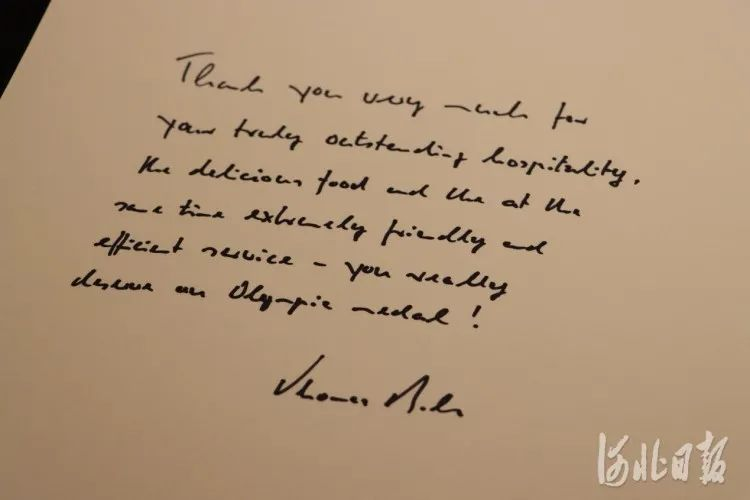 Thank you very much for
your truly outstanding hospitality,
the delicious food and the at the
same time extremely friendly and
efficient service – you really
deserve an Olympic medal!
Thomas Bach
河北日报